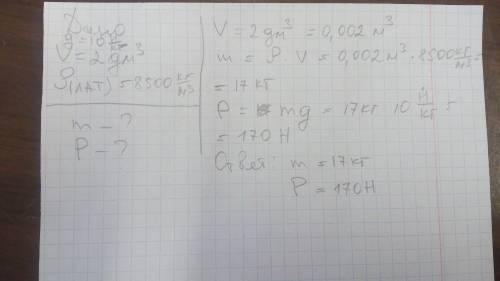 Дано
g = 10 Н/кг
V = 2 дм³
ρ(лат) = 8500 кг/м³
m - ?
P - ?
V = 2 дм³ = 0,002 м³
m = ρ · V = 0,002 м³ · 8500 кг/м³ =
= 17 кг
P = mg = 17кг 10 Н/кг =
= 170 Н
Ответ: m = 17кг
P = 170Н